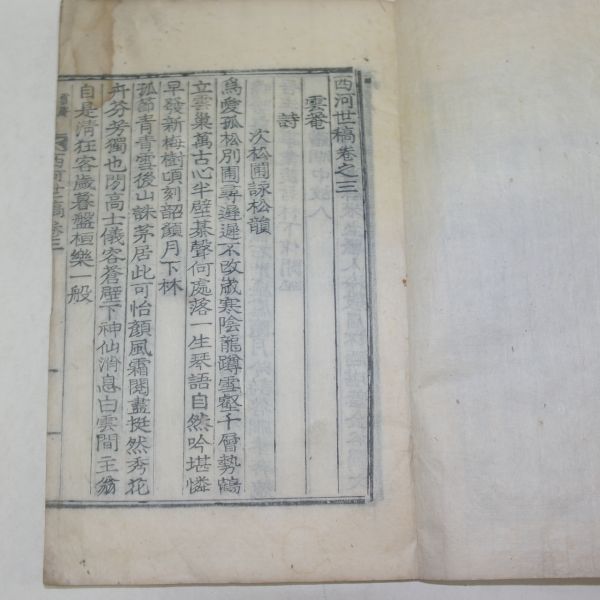 西河世稿卷之三
雲菴
詩
次松圃詠松韻
爲愛孤松別圃尋遲遲不改歲寒陰龍蹲雪壑千層勢鶴
立雲巢萬古心半壁碁聲何處落一生琴語自然吟堪憐
早發新梅樹頃刻韶顏月下林
孤節靑靑雲後山誅茅居此可怡顏風霜閱盡挺然秀花
卉芬芳獨也閒高士儀容蒼壁下神仙消息白雲間主翁
自是淸狂客歲暮盤桓樂一般
西河世稿 卷三